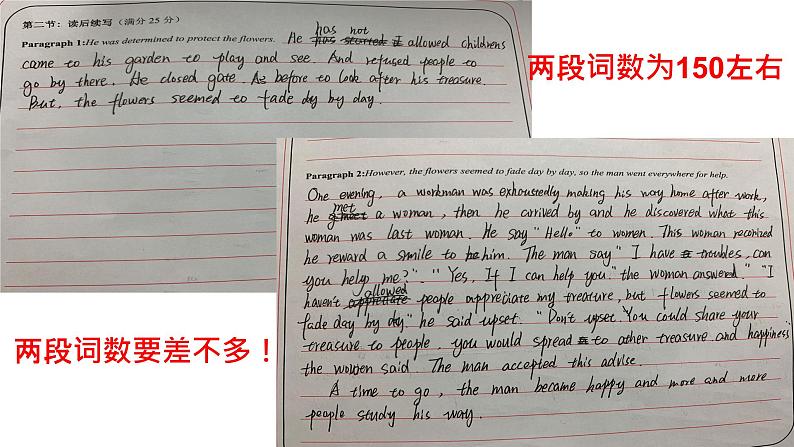 第二节：读后续写（满分 25 分）
Paragraph 1:He was determined to protect the flowers. He has not allowed childrens
came to his garden to play and see. And refused people to
go by there. He closed gate. As before to look after his treasure.
But, the flowers seemed to fade day by day.
两段词数为150左右
Paragraph 2:However, the flowers seemed to fade day by day, so the man went everywhere for help.
One evening, a workman was exhoustedly making his way home after work,
he met a woman, then he carrived by and he discovered what this
woman was last woman. He say "Hello" to women. This woman reconized
he reward a smile to him. The man say "I have troubles, can
you help me?". "Yes, If I can help you." the woman answered." "I
haven't allowed people appreciate my treasure, but flowers seemed to
fade day by day." he said upset. "Don't upset. You could share your
treasure to people, you would spread to other treasure and happiness"
the women said. The man accepted this advise.
A time to go, the man became happy and more and more
people study his way.
两段词数要差不多！